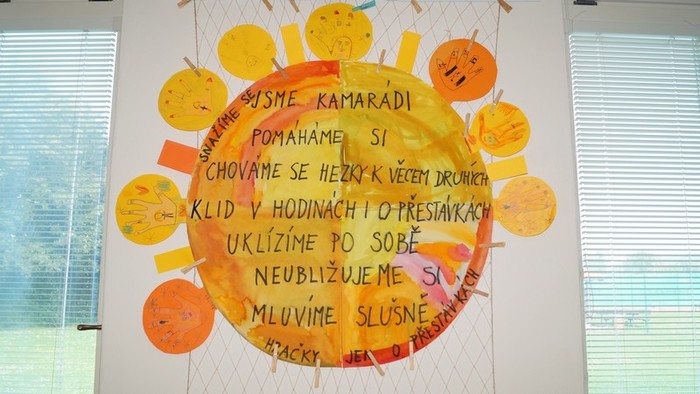 SNAŽÍME SE
JSME KAMARÁDI
POMÁHÁME SI
CHOVÁME SE HEZKY K VĚCEM DRUHÝCH
KLID V HODINÁCH I O PŘESTÁVKÁCH
UKLÍZÍME PO SOBĚ
NEUBLIŽUJEME SI
MLUVÍME SLUŠNĚ
HRAČKY JEN O PŘESTÁVKÁCH